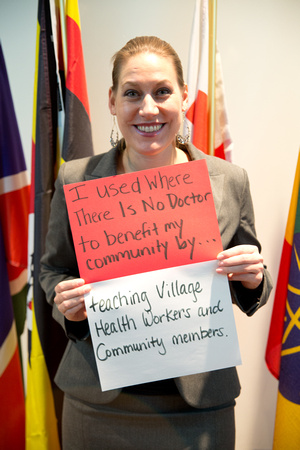 I used Where
There Is No Doctor
to benefit my
community by...
teaching Village
Health Workers and
Community members.